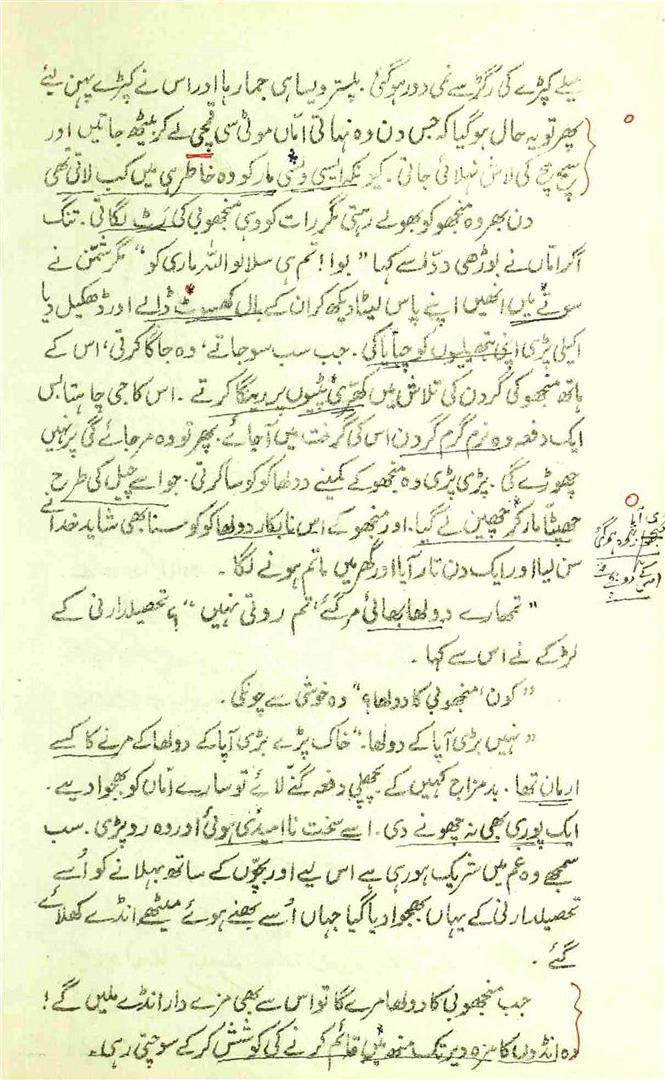 میلے کپڑے کی رگڑ سے نمی دور ہوگئی. پلستر ویسا ہی جما رہا اور اس نے کپڑے پہن لیئے
پھر تو یہ حال ہوگیا کہ جس دن وہ نہاتی اماں موٹی سی قمچی لے کر بیٹھ جاتیں اور
سچ مچ کی لاش نہلائی جاتی. کیونکہ ایسی وسی مار کو وہ خاطر ہی میں کب لاتی تھی
دن بھر وہ منجھو کو بھولے رہتی مگر رات کو وہی منجھوبی کی رٹ لگاتی. تنگ
آکر اماں نے بوڑھی دوا سے کہا "بوا! تم ہی سلالو اللہ ماری کو" مگر شمّن نے
سوتے میں انھیں اپنے پاس لیٹا دیکھ کر ان کے بال کھسوٹ ڈالے اور ڈھکیل دیا
اکیلی پڑی اپنی ہتھیلیوں کو چبایا کی. جب سب سو جاتے، وہ جاگا کرتی، اس کے
ہاتھ منجھو کی گردن کی تلاش میں کھرّی پٹیوں پر رینگا کرتے. اس کا جی چاہتا بس
ایک دفعہ وہ نرم گرم گردن اس کی گرفت میں آجائے. پھر تو وہ مر جائے گی پر نہیں
چھوڑے گی. پڑی پڑی وہ منجھو کے کمینے دولھا کو کوسا کرتی. جو اسے چیل کی طرح
جھپٹّا مار کر چھین لے گیا. اور منجھو کے اس نابکار دولھا کو کوسنا بھی شاید خدا نے
سن لیا اور ایک دن تار آیا اور گھر میں ماتم ہونے لگا.
"تمہارے دولھا بھائی مرگئے، تم روتی نہیں"؟ تحصیلدارنی کے
لڑکے نے اس سے کہا.
"کون، منجھوبی کا دولھا؟" وہ خوشی سے چونکی.
"نہیں بڑی آپا کے دولھا." خاک پڑے بڑی آپا کے دولھا کے مرنے کا کسے
ارمان تھا. بدمزاج کہیں کے. پچھلی دفعہ گنّے لائے تو سارے اماں کو بھجوادیے.
ایک پوری بھی نہ چھونے دی. اسے سخت ناامیدی ہوئی اور وہ رو پڑی. سب
سمجھے وہ غم میں شریک ہو رہی ہے اس لیے اور بچّوں کے ساتھ بہلانے کو اُسے
تحصیلدارنی کے یہاں بھجوادیا گیا جہاں اُسے بھنے ہوئے میٹھے انڈے کھلائے
گئے.
جب منجھوبی کا دولھا مرے گا تو اس سے بھی مزے دار انڈے ملیں گے!
وہ انڈوں کا مزہ دیر تک منھ میں قائم کرنے کی کوشش کرکے سوچتی رہی.
بڑی آپا